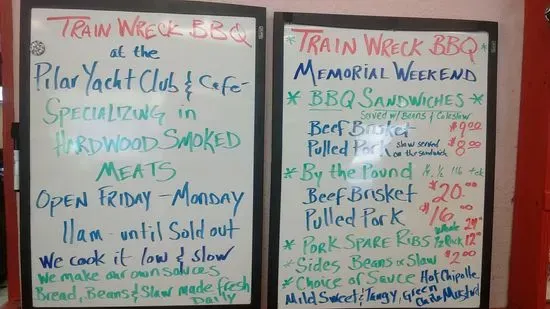 TRAIN WRECK BBQ
at the
Pilar Yacht Club & Café
SPECIALIZING in
HARDWOOD SMOKED
MEATS
OPEN FRIDAY - MONDAY
11am - until Sold out
We cook it low & slow
We make our own sauces
Bread, Beans & Slaw made fresh
Daily
*TRAIN WRECK BBQ*
MEMORIAL WEEKEND
* BBQ SANDWICHES *
Served w/ Beans & Coleslaw
Beef Brisket $9.00
Pulled Pork slaw served on the sandwich $8.00
* By the Pound
Beef Brisket $20.00
Pulled Pork $16.00
* PORK SPARE RIBS Whole 24.00
1/2 Rack 12.00
* Sides Beans or Slaw $2.00
* Choice of Sauce Hot Chipotle
Mild Sweet & Tangy, Green Chile Mustard